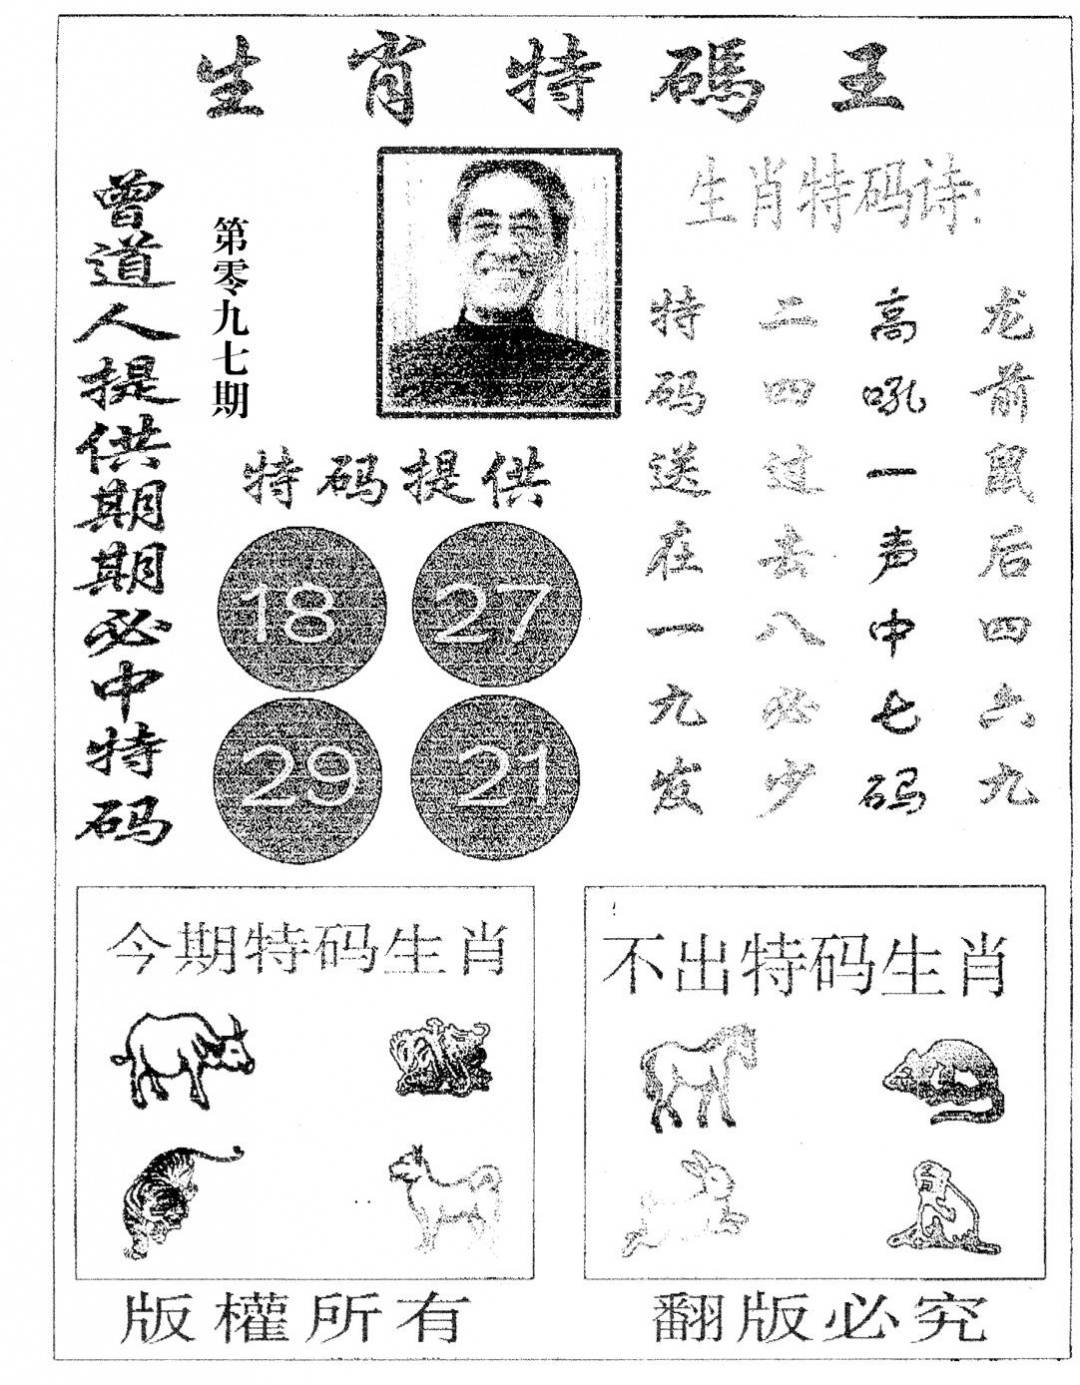 生肖特碼王
曾道人提供期期必中特码
第零九七期
生肖特码诗:
龙前鼠后四六九
高吼一声中七码
二四过去八必少
特码送在一九发
特码提供
18 27
29 21
今期特码生肖
不出特码生肖
版權所有
翻版必究